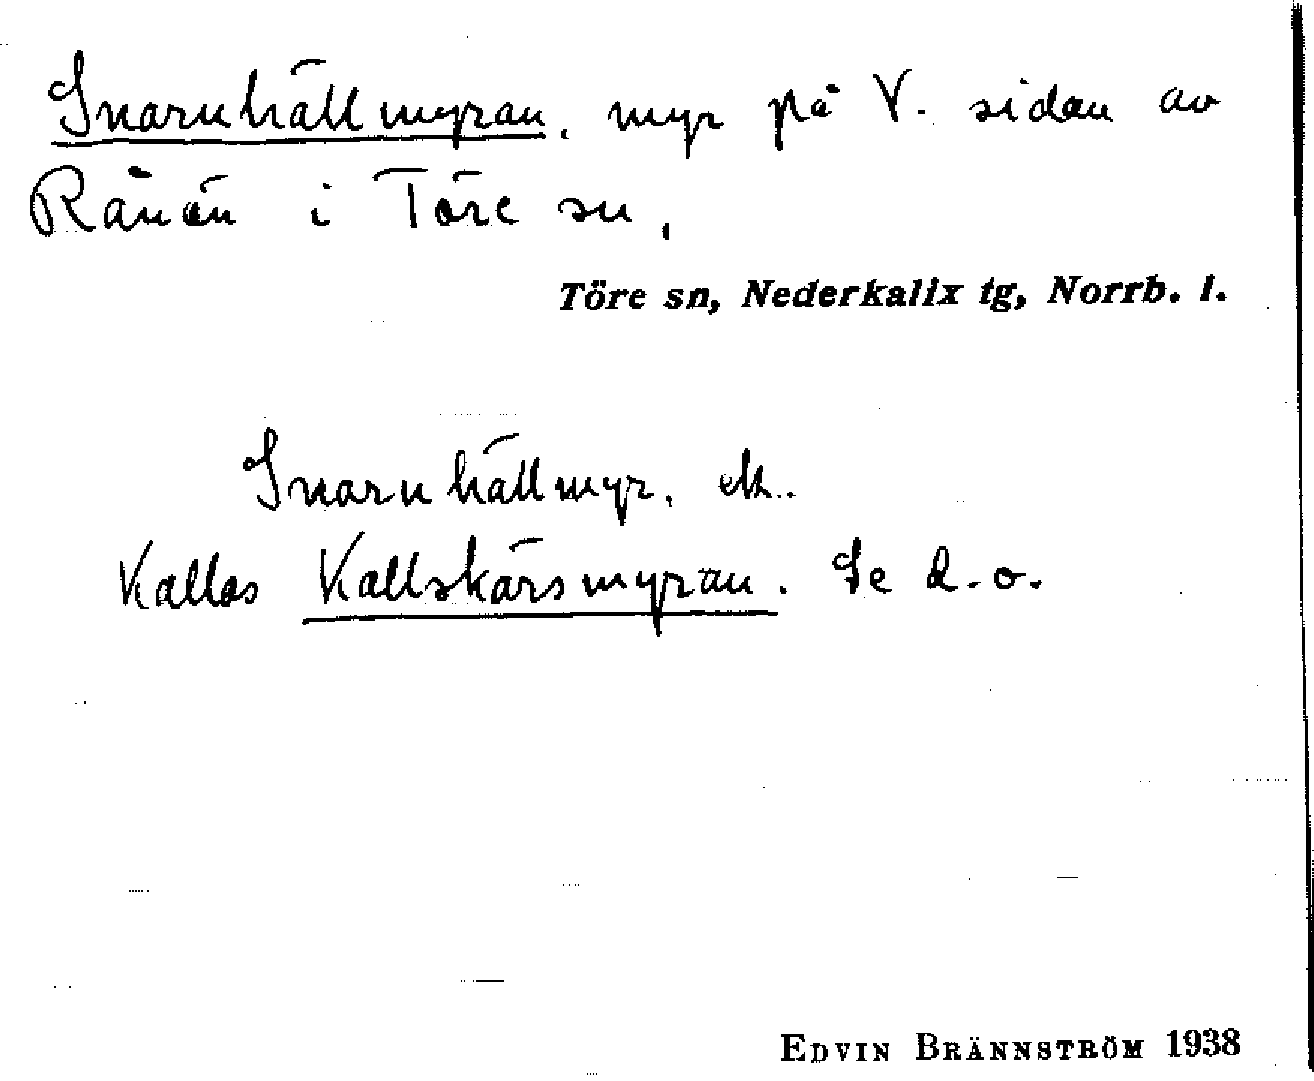 Snarnhällmyran, myr på V. sidan av
Rånön i Töre sn,
Töre sn, Nederkalix tg, Norrb. l.
Snarnhällmyr, ek..
Kallas Kallskärsmyran. Se d.o.
EDVIN BRÄNNSTRÖM 1938